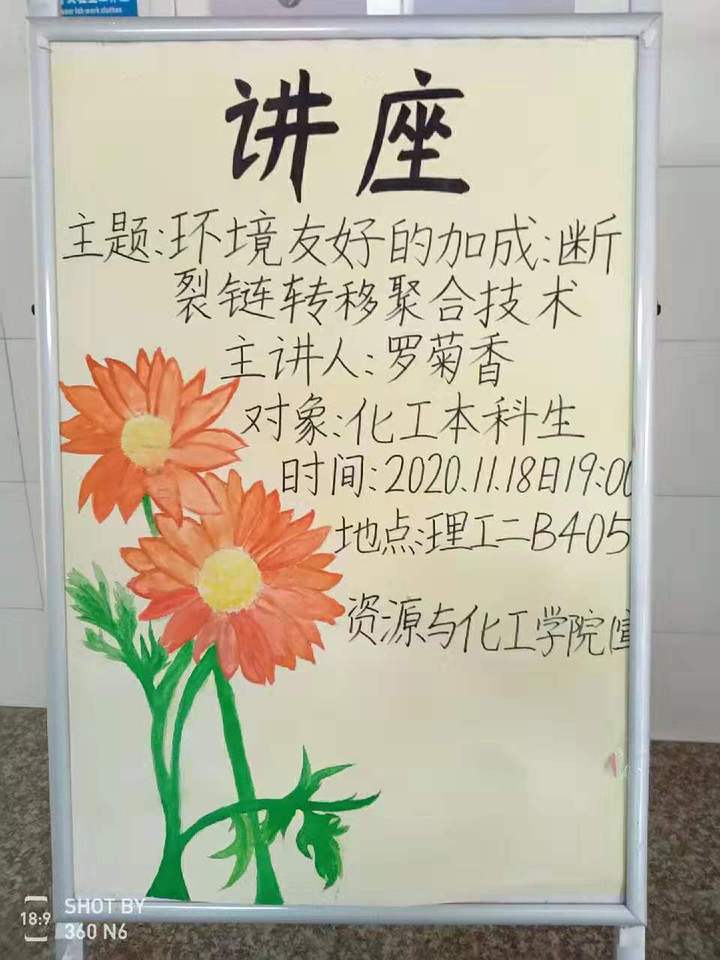 your lab work clothes
讲座
主题:环境友好的加成:断
裂链转移聚合技术
主讲人:罗菊香
对象:化工本科生
时间:2020.11.18日19:00
地点:理工二B405
资源与化工学院(宣
18:9
SHOT BY
360 N6